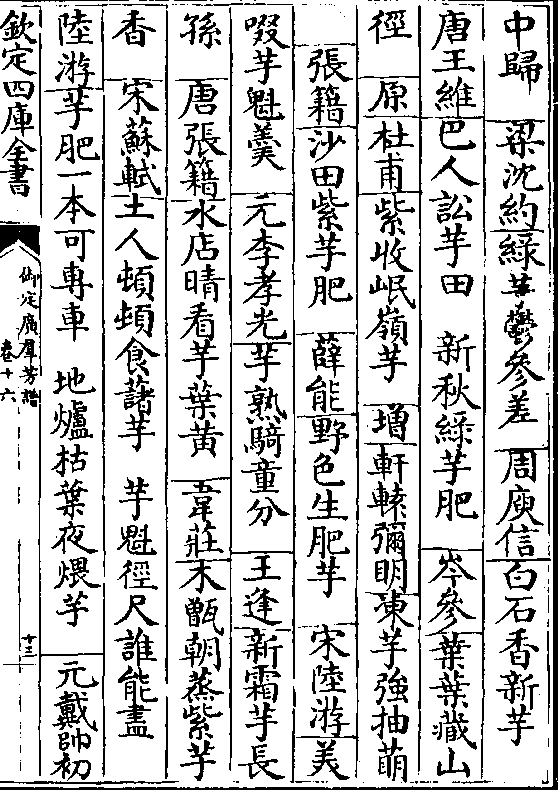 中歸 梁沈約綠芋鬱參差 周庾信白石香新芋
唐王維巴人訟芋田 新秋綠芋肥 岑參葉葉藏山
徑 原杜甫紫收岷嶺芋 增軒轅彌明凍芋強抽萌
張籍沙田紫芋肥 薛能野色生肥芋 宋陸游美
啜芋魁羹 元李孝光芋熟騎童分 王逢新霜芋長
孫 唐張籍水店晴看芋葉黃 韋莊木甑朝蒸紫芋
香 宋蘇軾土人頓頓食藷芋 芋魁徑尺誰能盡
陸游芋肥一本可專車 地爐枯葉夜煨芋 元戴帥初
欽定四庫全書
御定廣羣芳譜
卷十六
十三